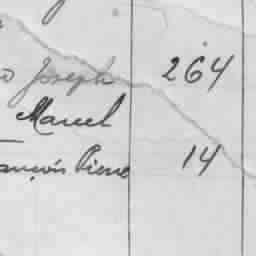 Joseph 264
Marcel
Pierre 14